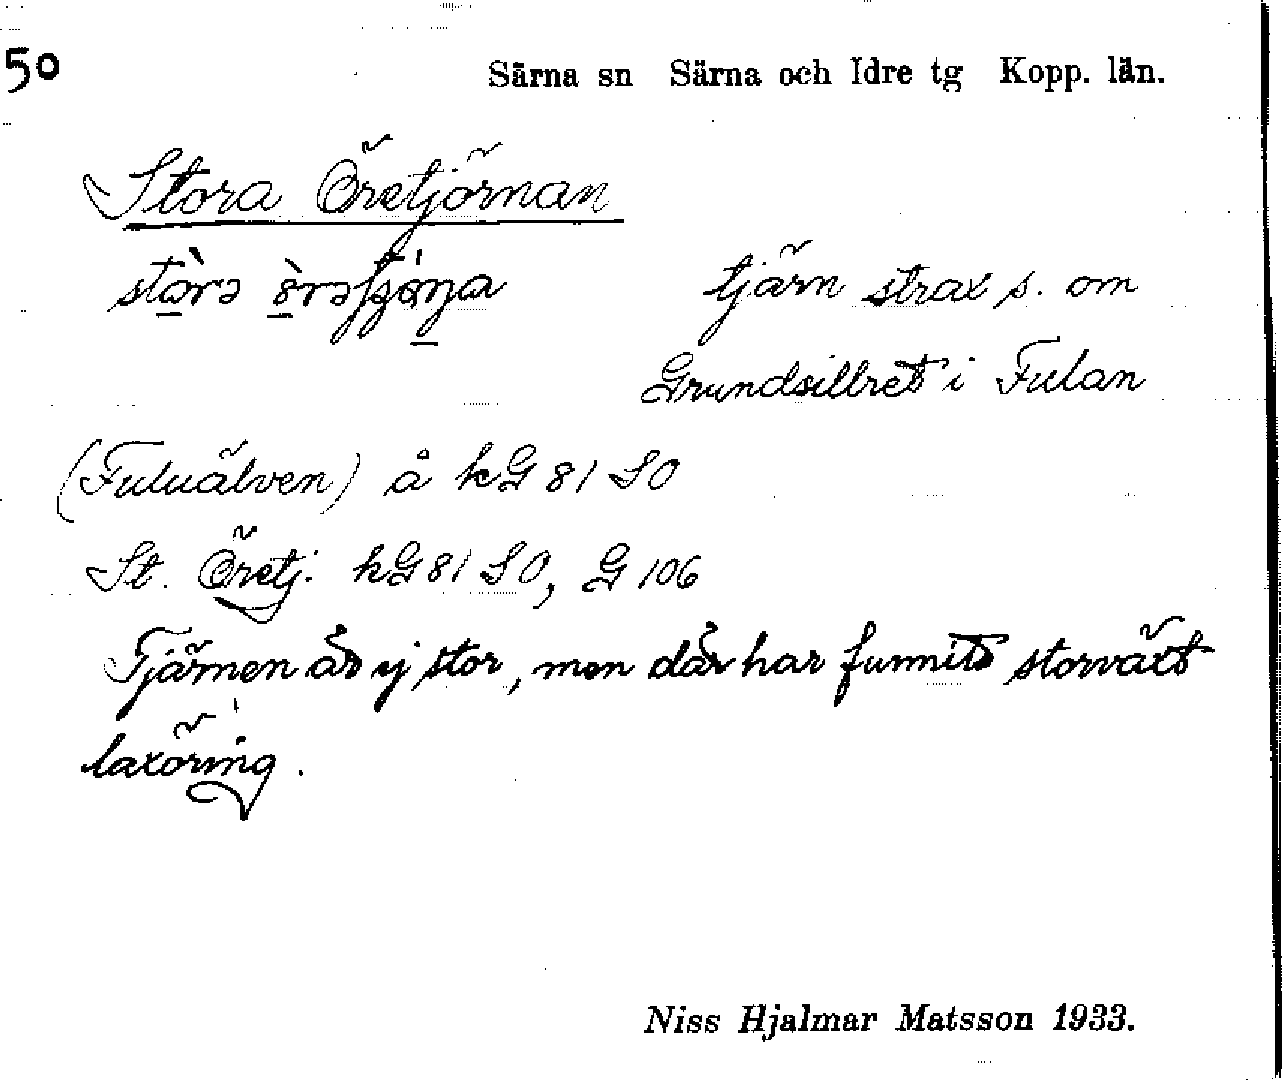 50
Särna sn Särna och Idre tg Kopp. län.
Stora Öretjörnan
tjärn strax s. om
Grundsillret i Fulan
(Fuluälven) å kG 81 SO
St. Öretj. kG 81 SO, G 106
Tjärnen är ej stor, men där har funnits storväxt
laxöring.
Niss Hjalmar Matsson 1933.